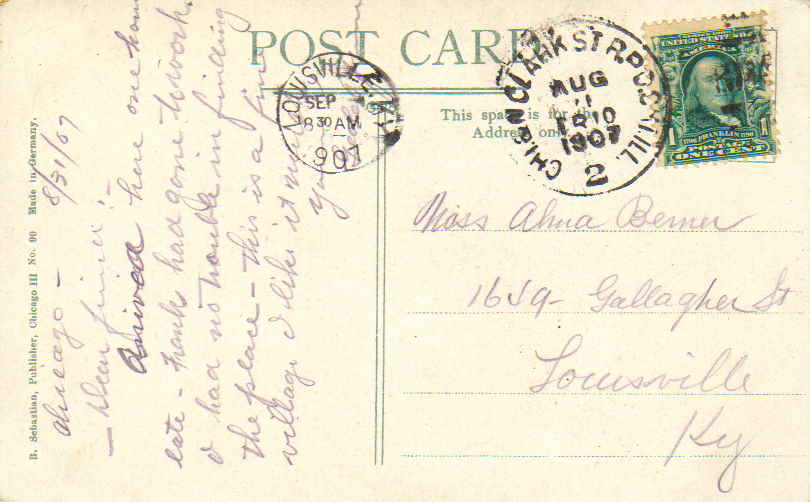 POST CARD
This space is for the
Address only
LOUISVILLE, KY.
SEP
830 AM
1907
CLARK ST R.P.O.
CHI
ILL
AUG
1907
2
UNITED STATES OF AMERICA
1706 FRANKLIN 1790
POSTAGE
1 ONE CENT 1
Miss Alma Berner
1649- Gallagher St
Louisville
Ky
B. Sebastian, Publisher, Chicago Ill No. 90 Made in Germany.
Chicago - 8/31/07
- Dear friend :-
Arrived here one hour
late - Franks had gone to work.
I had no trouble in finding
the place - this is a fine
village I like it